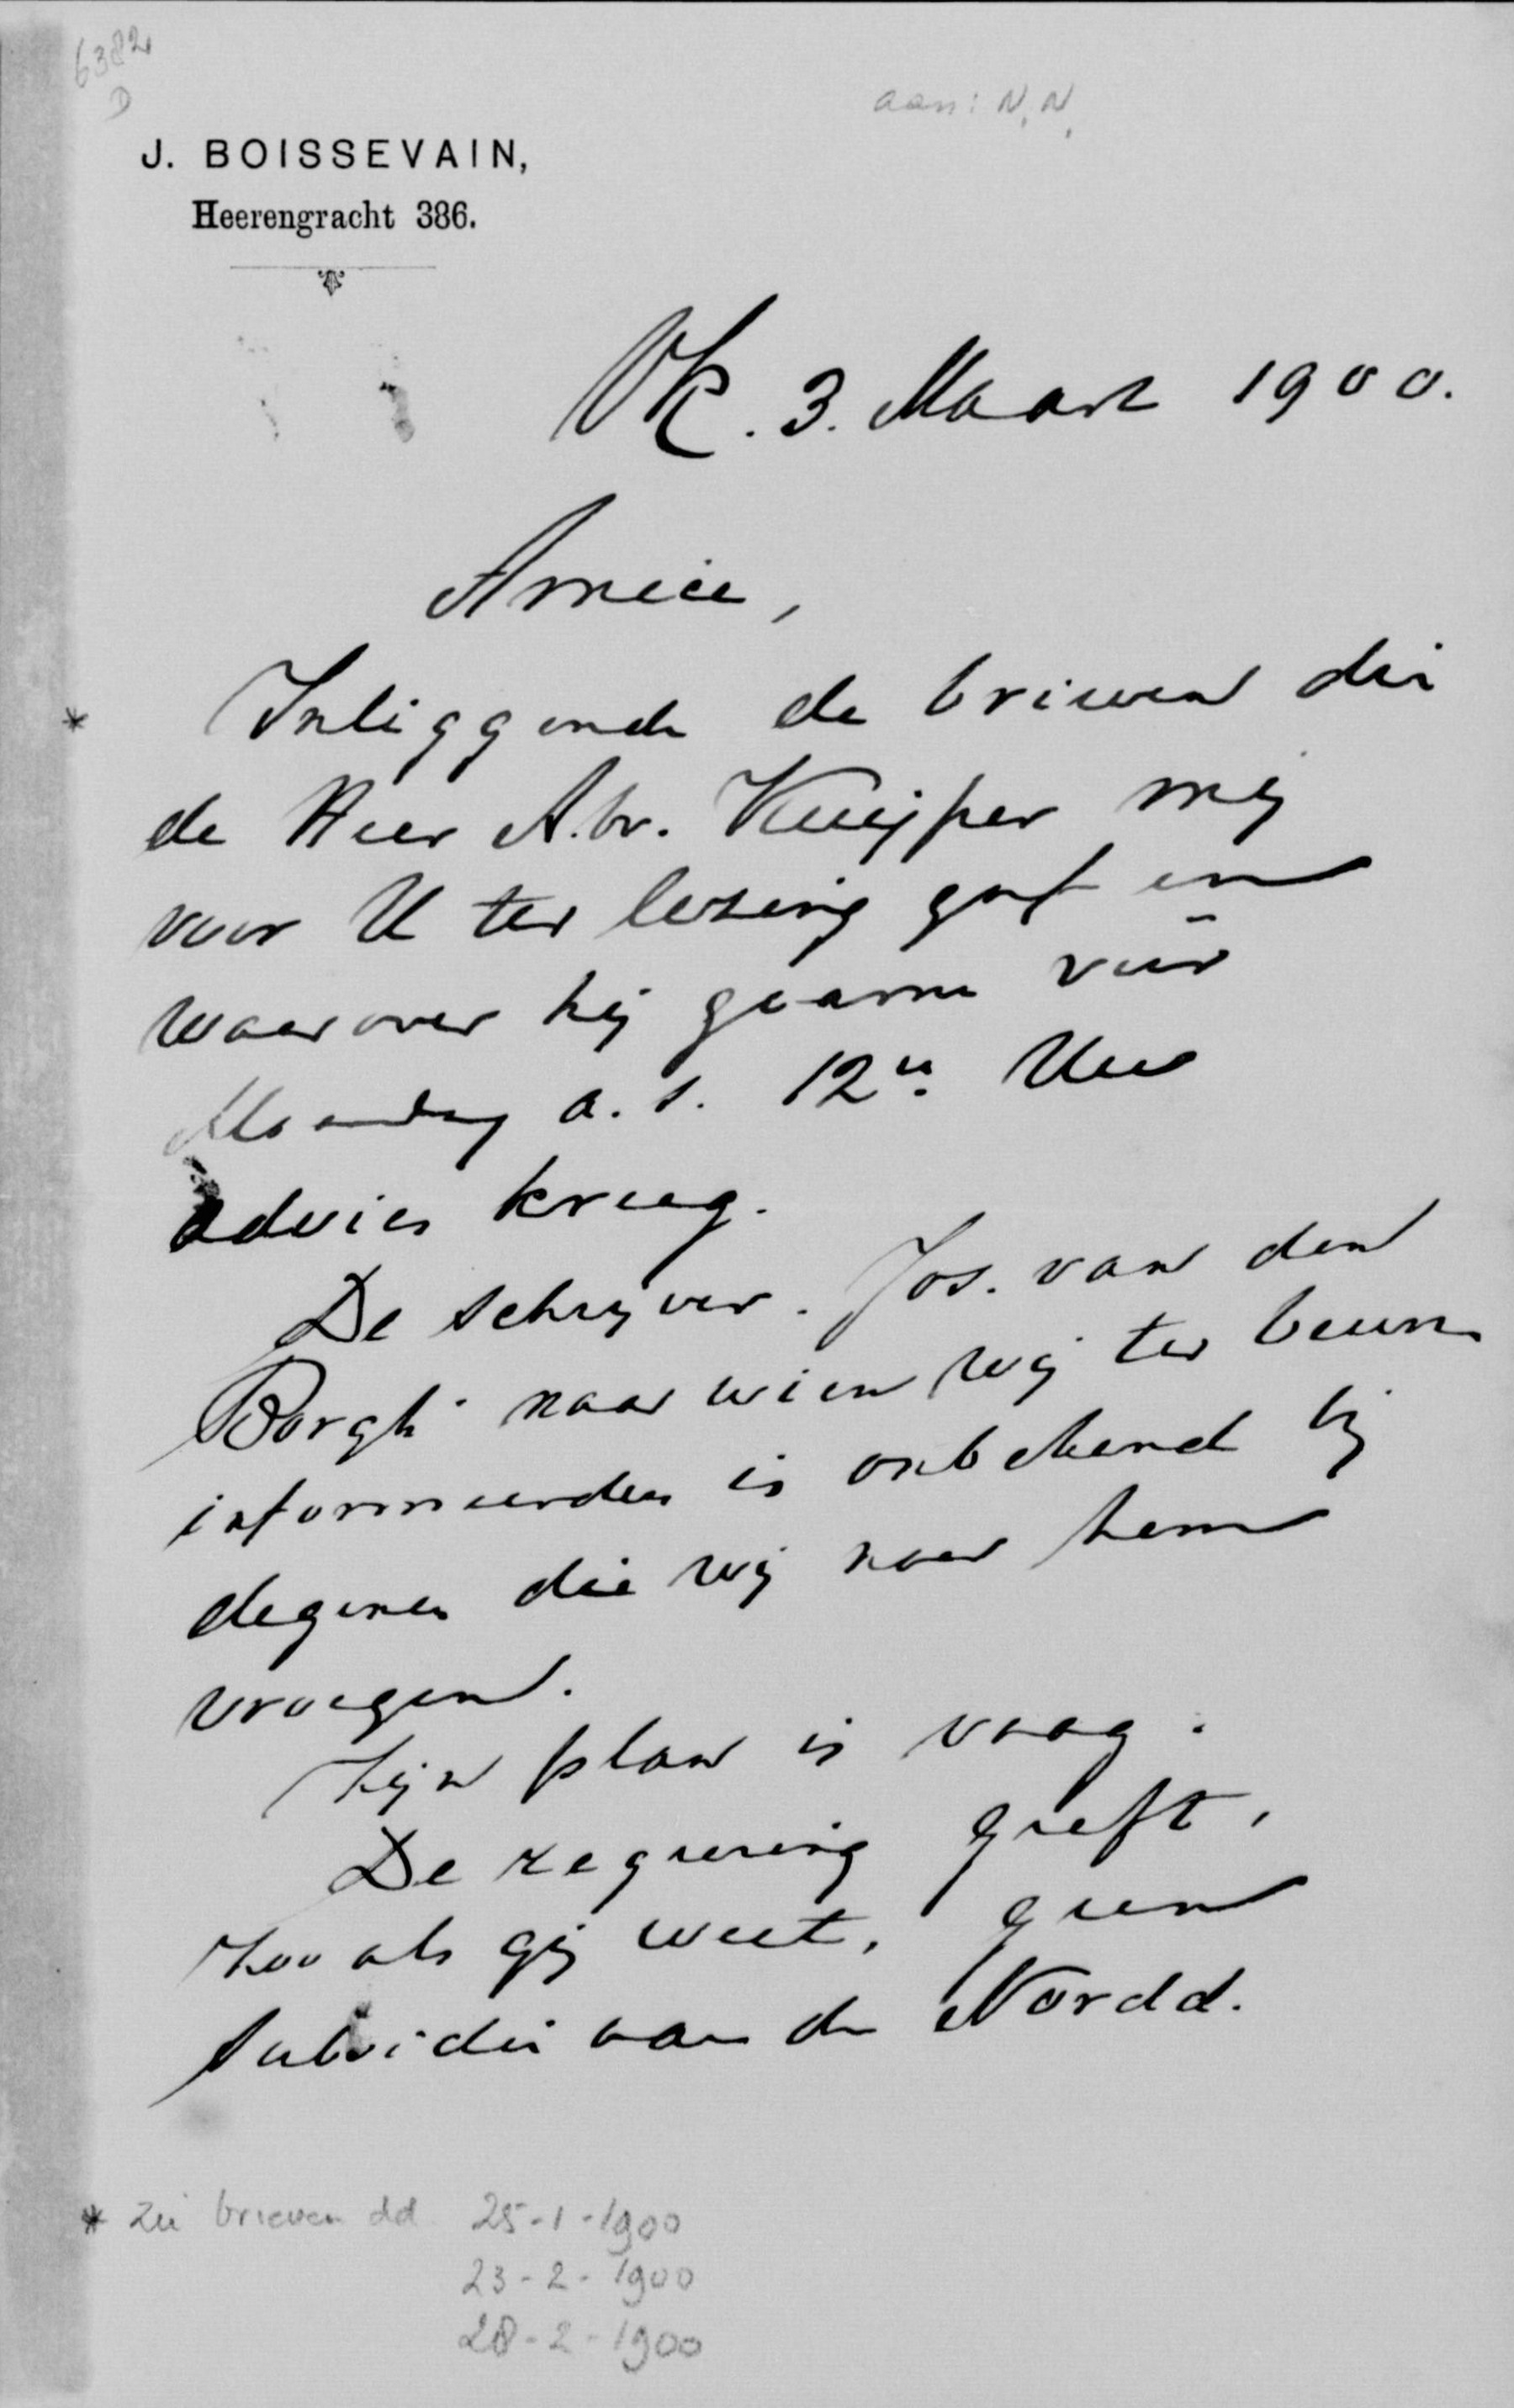 6382
D
aan: N.N.
J. BOISSEVAIN,
Heerengracht 386.
3. Maart 1900.
Amice,
* Inliggende de brieven die
de Heer Abr. Kuijper mij
voor U ter lezing gaf en
waarover hij gaarne vóór
Maandag a.s. 12 u. Uw
advies kreeg.
De schrijver. Jos. van den
Bergh naar wien wij ter beurs
informeerden is onbekend bij
degenen die wij naar hem
vroegen.
Zijn plan is vaag.
De regeering geeft,
zooals gij weet, geen
subsidie aan de Nordd.
* zie brieven dd 25-1-1900
23-2-1900
28-2-1900